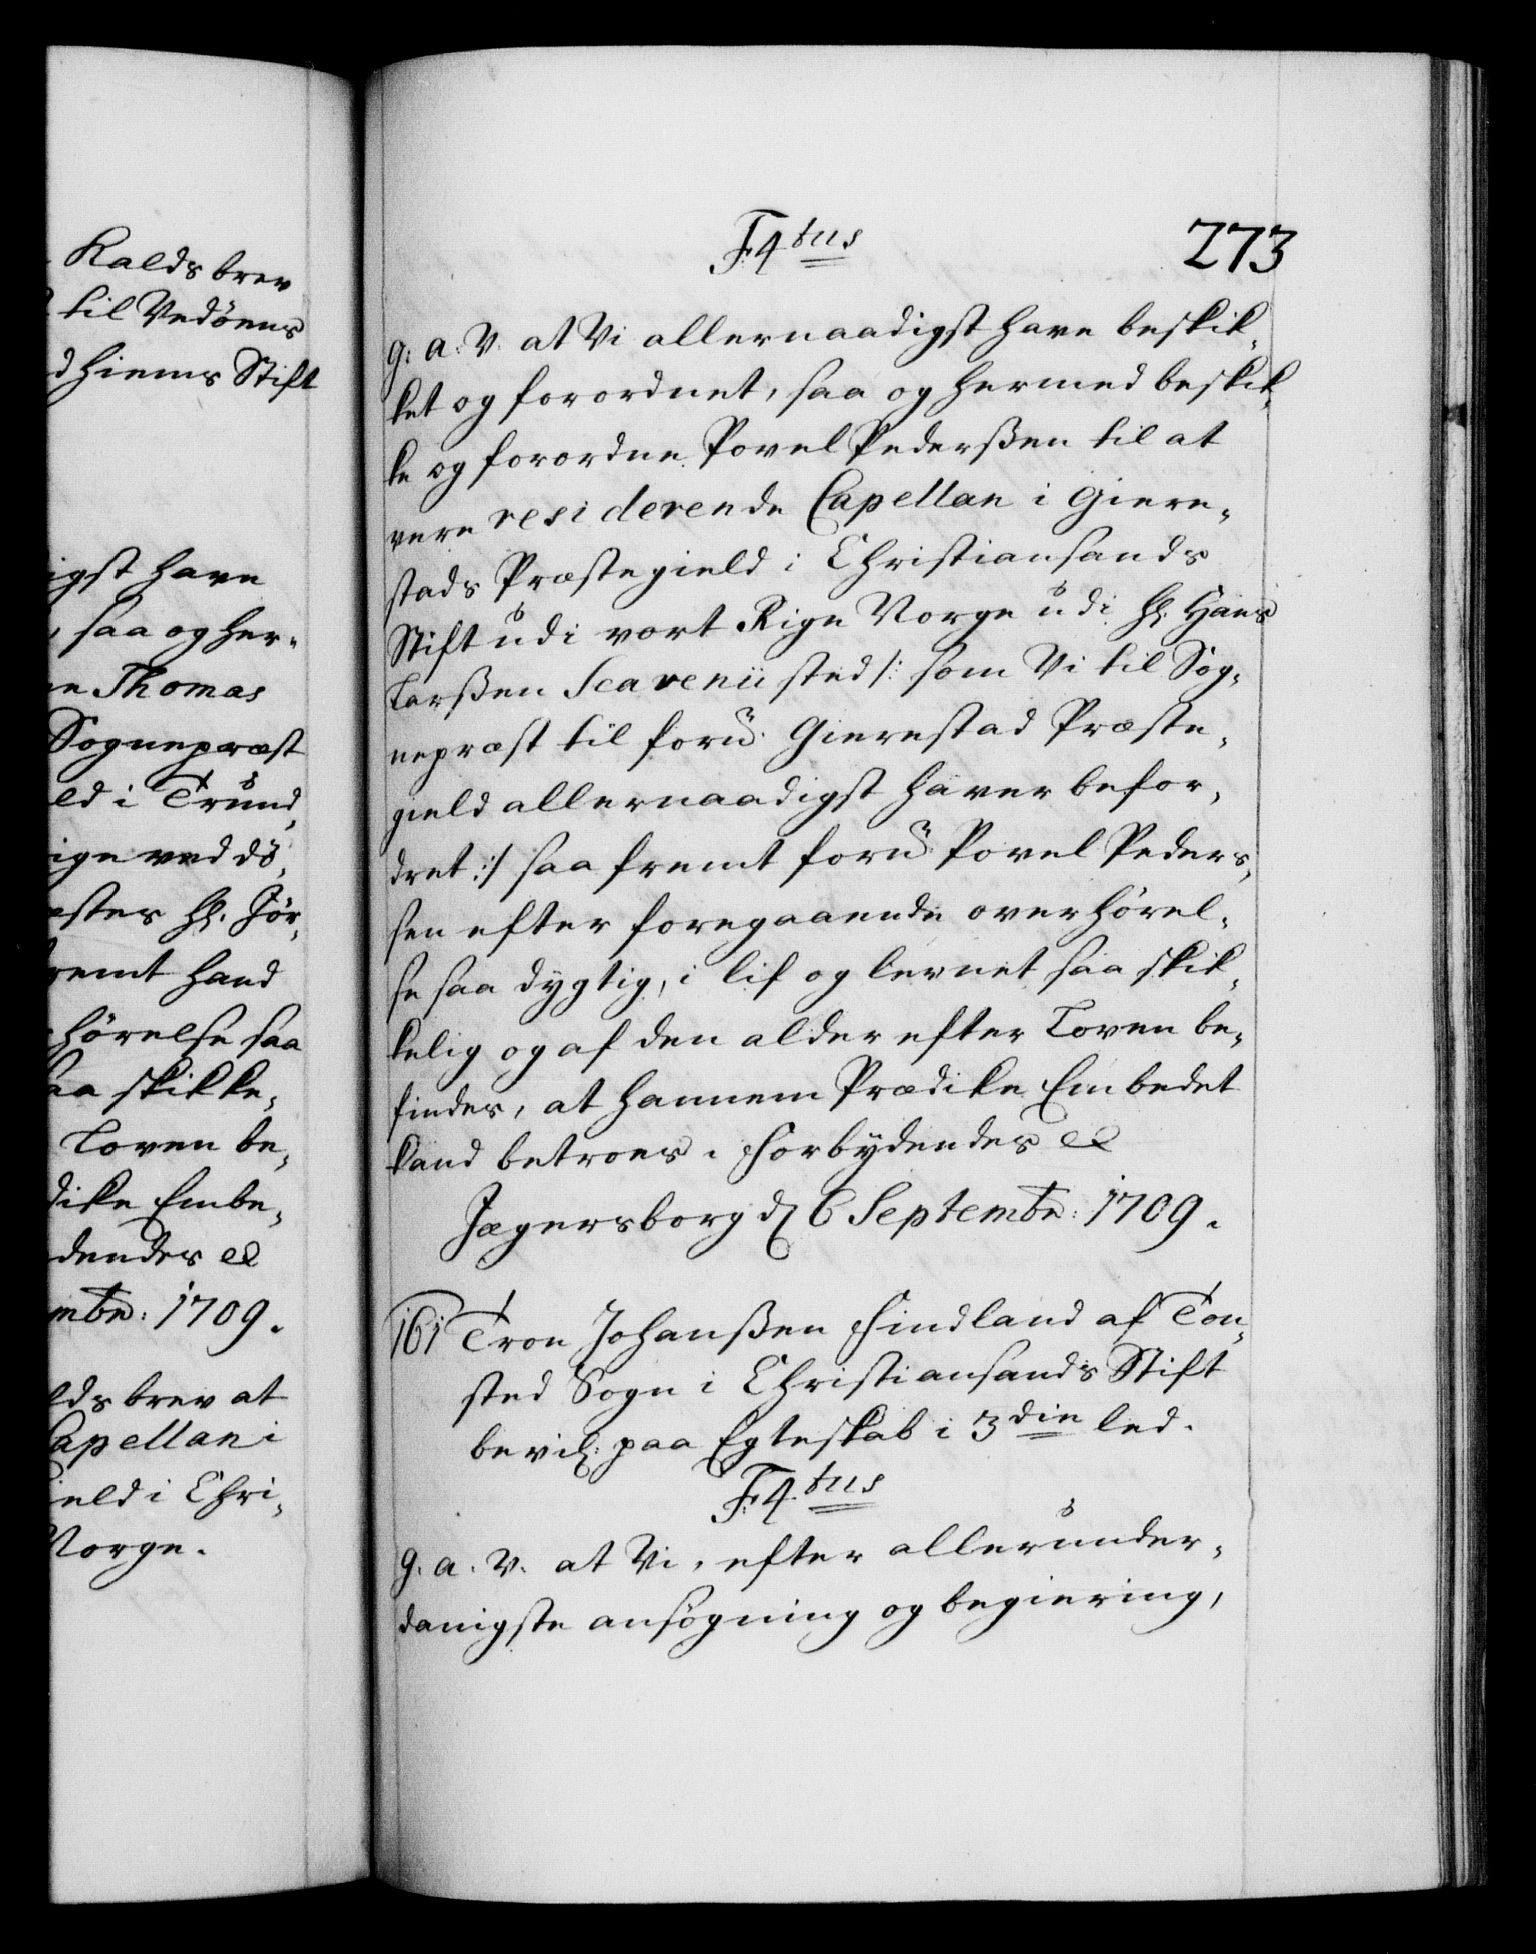 Kalds brev
til Vedöens
dhiems Stift
igst have
, saa og her-
ne Thomas
Sognepræst
eld i Trund,
ige ved dö,
estes Hl. Jör,
remt hand
hörelse saa
aa skikke,
Loven be,
dike Embe,
dendes &
mbr: 1709.
lds brev at
Capellan i
ield i Chri,
Norge.
F4tus
273
g: a: V. at Vi allernaadigst have beskik,
ket og forordnet, saa og hermed beskik,
ke og forordne Povel Pederßen til at
vere residerende Capellan i Giere,
stads Præstegield i Christiansands
Stift udi vort Rige Norge udi Hl: Hans
Larßen Scavenii sted /: som Vi til Sog,
nepræst til forn: Gierestad Præste,
gield allernaadigst haver befor,
dret :/ saa fremt forn: Povel Peders,
sen efter foregaaende overhörel,
se saa dygtig, i lif og levnet saa skik,
kelig og af den alder efter Loven be,
findes, at hannem Prædike Embedet
kand betroes. Forbydendes &
Jægersborg d 6 Septembr: 1709.
161 Tron Johanßen Findland af Ton,
sted Sogn i Christiansands Stift
bevil: paa Egteskab i 3die led.
F4tus
g. a. V. at Vi, efter allerunder,
danigste ansögning og begiering,